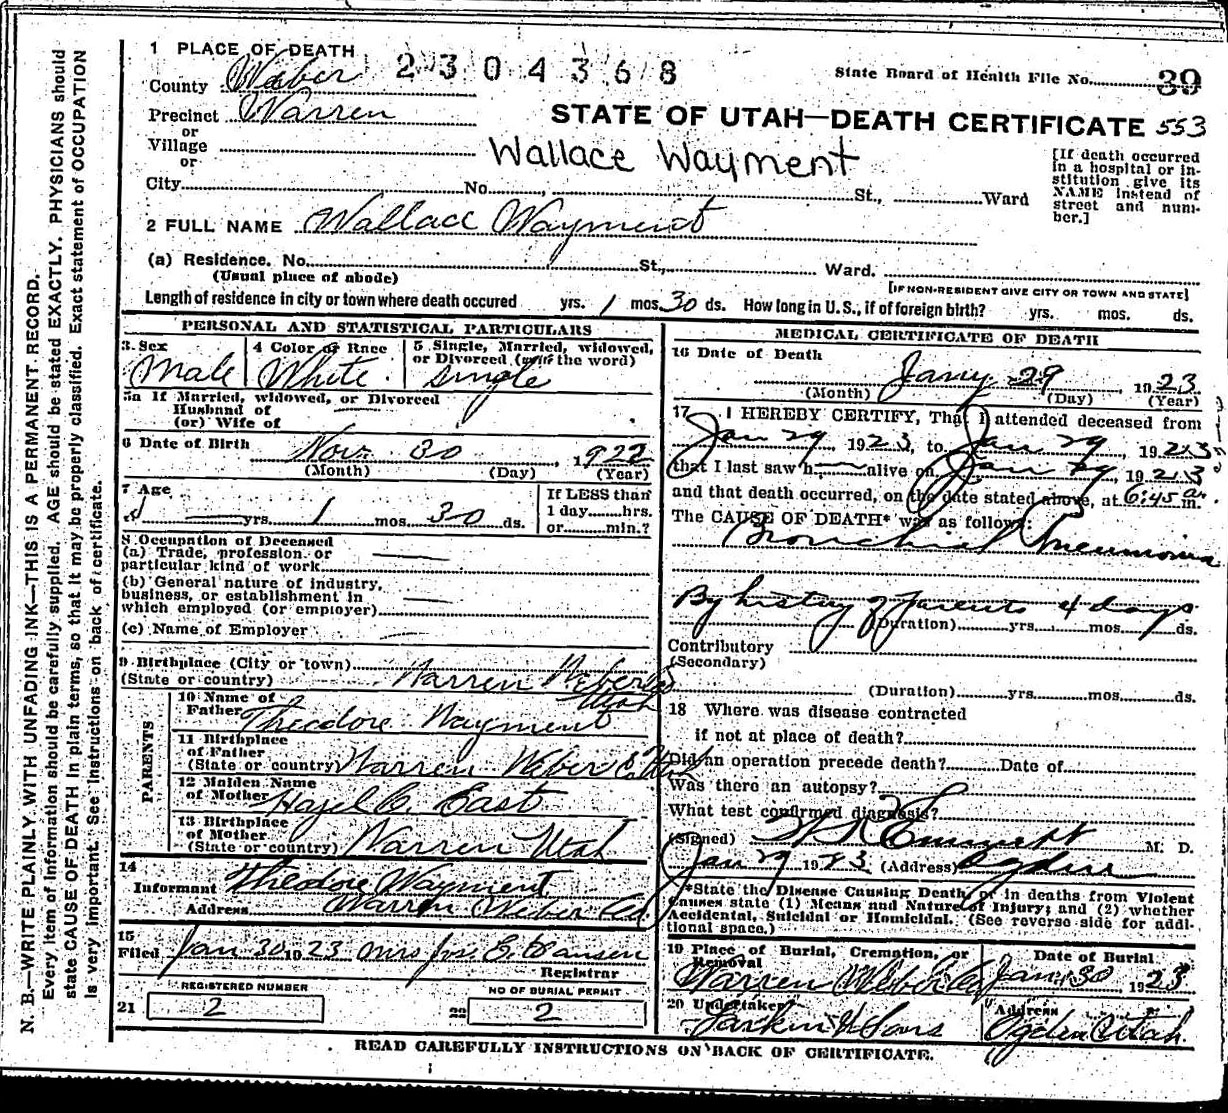 1 PLACE OF DEATH
2304368
State Board of Health File No. 39
County Weber
Precinct Warren
STATE OF UTAH—DEATH CERTIFICATE 553
or
Village
or
Wallace Wayment
[If death occurred in a hospital or institution give its NAME instead of street and number.]
City No. St., Ward
2 FULL NAME Wallace Wayment
(a) Residence. No. St., Ward.
(Usual place of abode)
[IF NON-RESIDENT GIVE CITY OR TOWN AND STATE]
Length of residence in city or town where death occured yrs. 1 mos. 30 ds. How long in U. S., if of foreign birth? yrs. mos. ds.
PERSONAL AND STATISTICAL PARTICULARS
3. Sex
Male
4 Color or Race
White
5 Single, Married, widowed,
or Divorced (write the word)
Single
5a If Married, widowed, or Divorced
Husband of
(or) Wife of
6 Date of Birth Nov. 30, 1922
(Month) (Day) (Year)
7 Age
yrs. 1 mos. 30 ds.
If LESS than
1 day hrs.
or min.?
8 Occupation of Deceased
(a) Trade, profession or
particular kind of work
(b) General nature of industry,
business, or establishment in
which employed (or employer)
(c) Name of Employer
9 Birthplace (City or town)
(State or country) Warren Weber Co
Utah
PARENTS
10 Name of
Father Theodore Wayment
11 Birthplace
of Father
(State or country) Warren Weber Co Utah
12 Maiden Name
of Mother Hazel C. East
13 Birthplace
of Mother
(State or country) Warren Utah
14
Informant Theodore Wayment
Address Warren Weber Co.
15
Filed Jan 30 1923 Mrs Jos. E. Hansen
Registrar
REGISTERED NUMBER
21 2
NO OF BURIAL PERMIT
22 2
MEDICAL CERTIFICATE OF DEATH
16 Date of Death
Jany 29 1923
(Month) (Day) (Year)
17 I HEREBY CERTIFY, That I attended deceased from
Jan 29 1923, to Jan 29, 1923
that I last saw h alive on Jan 29 1923
and that death occurred, on the date stated above, at 6:45 a m.
The CAUSE OF DEATH* was as follows:
Bronchial Pneumonia
By history of parents 4 days
(Duration) yrs. mos. ds.
Contributory
(Secondary)
(Duration) yrs. mos. ds.
18 Where was disease contracted
if not at place of death?
Did an operation precede death? Date of
Was there an autopsy?
What test confirmed diagnosis?
(Signed) Emmett M. D.
Jan 29 1923 (Address) Ogden
*State the Disease Causing Death, or in deaths from Violent
Causes state (1) Means and Nature of Injury; and (2) whether
Accidental, Suicidal or Homicidal. (See reverse side for addi-
tional space.)
19 Place of Burial, Cremation, or
Removal
Warren Weber Co
Date of Burial
Jan. 30 1923
20 Undertaker
Larkin & Sons
Address
Ogden Utah.
READ CAREFULLY INSTRUCTIONS ON BACK OF CERTIFICATE.
N. B.—WRITE PLAINLY WITH UNFADING INK—THIS IS A PERMANENT RECORD.
Every item of information should be carefully supplied. AGE should be stated EXACTLY. PHYSICIANS should
state CAUSE OF DEATH in plain terms, so that it may be properly classified. Exact statement of OCCUPATION
is very important. See instructions on back of certificate.